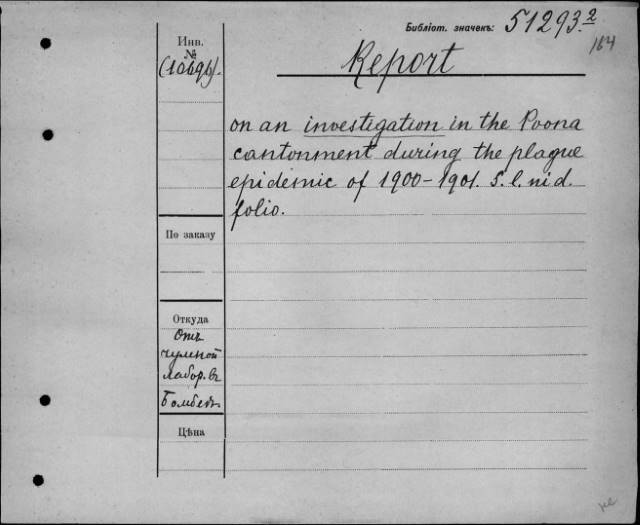 Библіот. значекъ: 51293.2
164
Инв.
№
Report
on an investigation in the Poona
cantonment during the plague
epidemic of 1900-1901. S. l. ni d.
folio.
По заказу
Откуда
Отъ
чумной
лабор. въ
Бомбеѣ
Цѣна